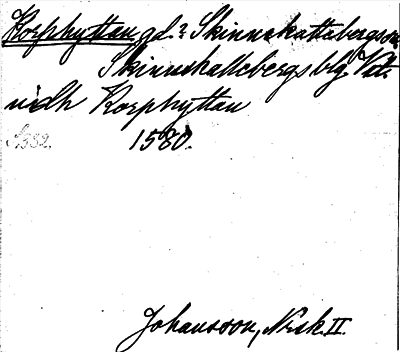 Korphyttan gd.? Skinnskattebergs sn.
Skinnskattebergs blg. Vstm.
widh Korphyttan
S. 332. 1580.
Johansson, Norsk. II.